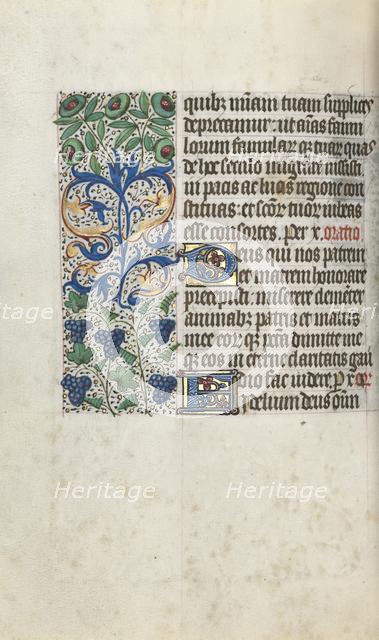 quibz misam tuam supplices
deprecamur: ut aias famu
lorum famular qz tuar quas
de hoc seculo migrare iussisti
in pacis ac lucis regione con
stituas: et scor tuor iubeas
esse consortes. Per x. oratio.
Deus qui nos patrem
et matrem honorare
precepisti. miserere clementer
animabz patris et matris
mee eorqz peccata dimitte me
qz eos in eterne claritatis gau
dio fac videre. p x or
Fidelium deus oim
Heritage Heritage
Heritage Heritage
Heritage Heritage